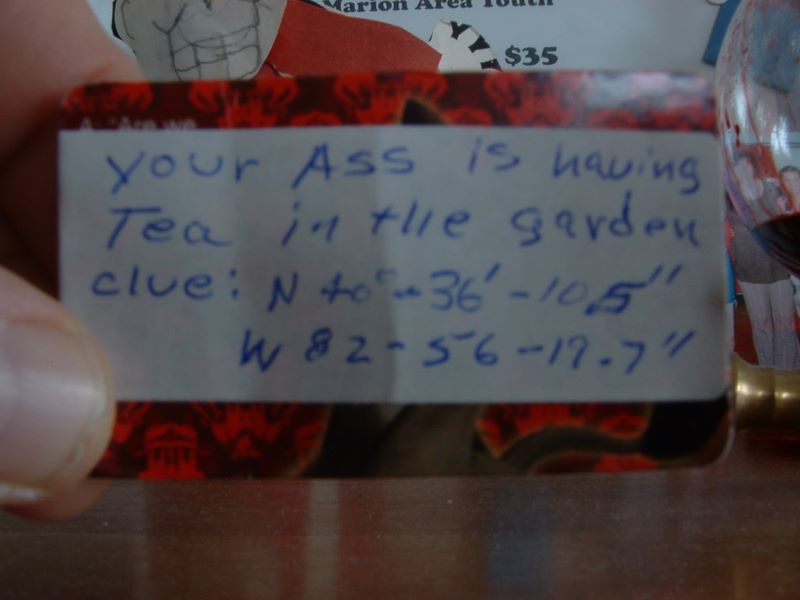 Marion Area Youth
$35
A. "Are we
your Ass is having
Tea in the garden
clue: N 40°-36'-10.5"
W 82-56-19.7"